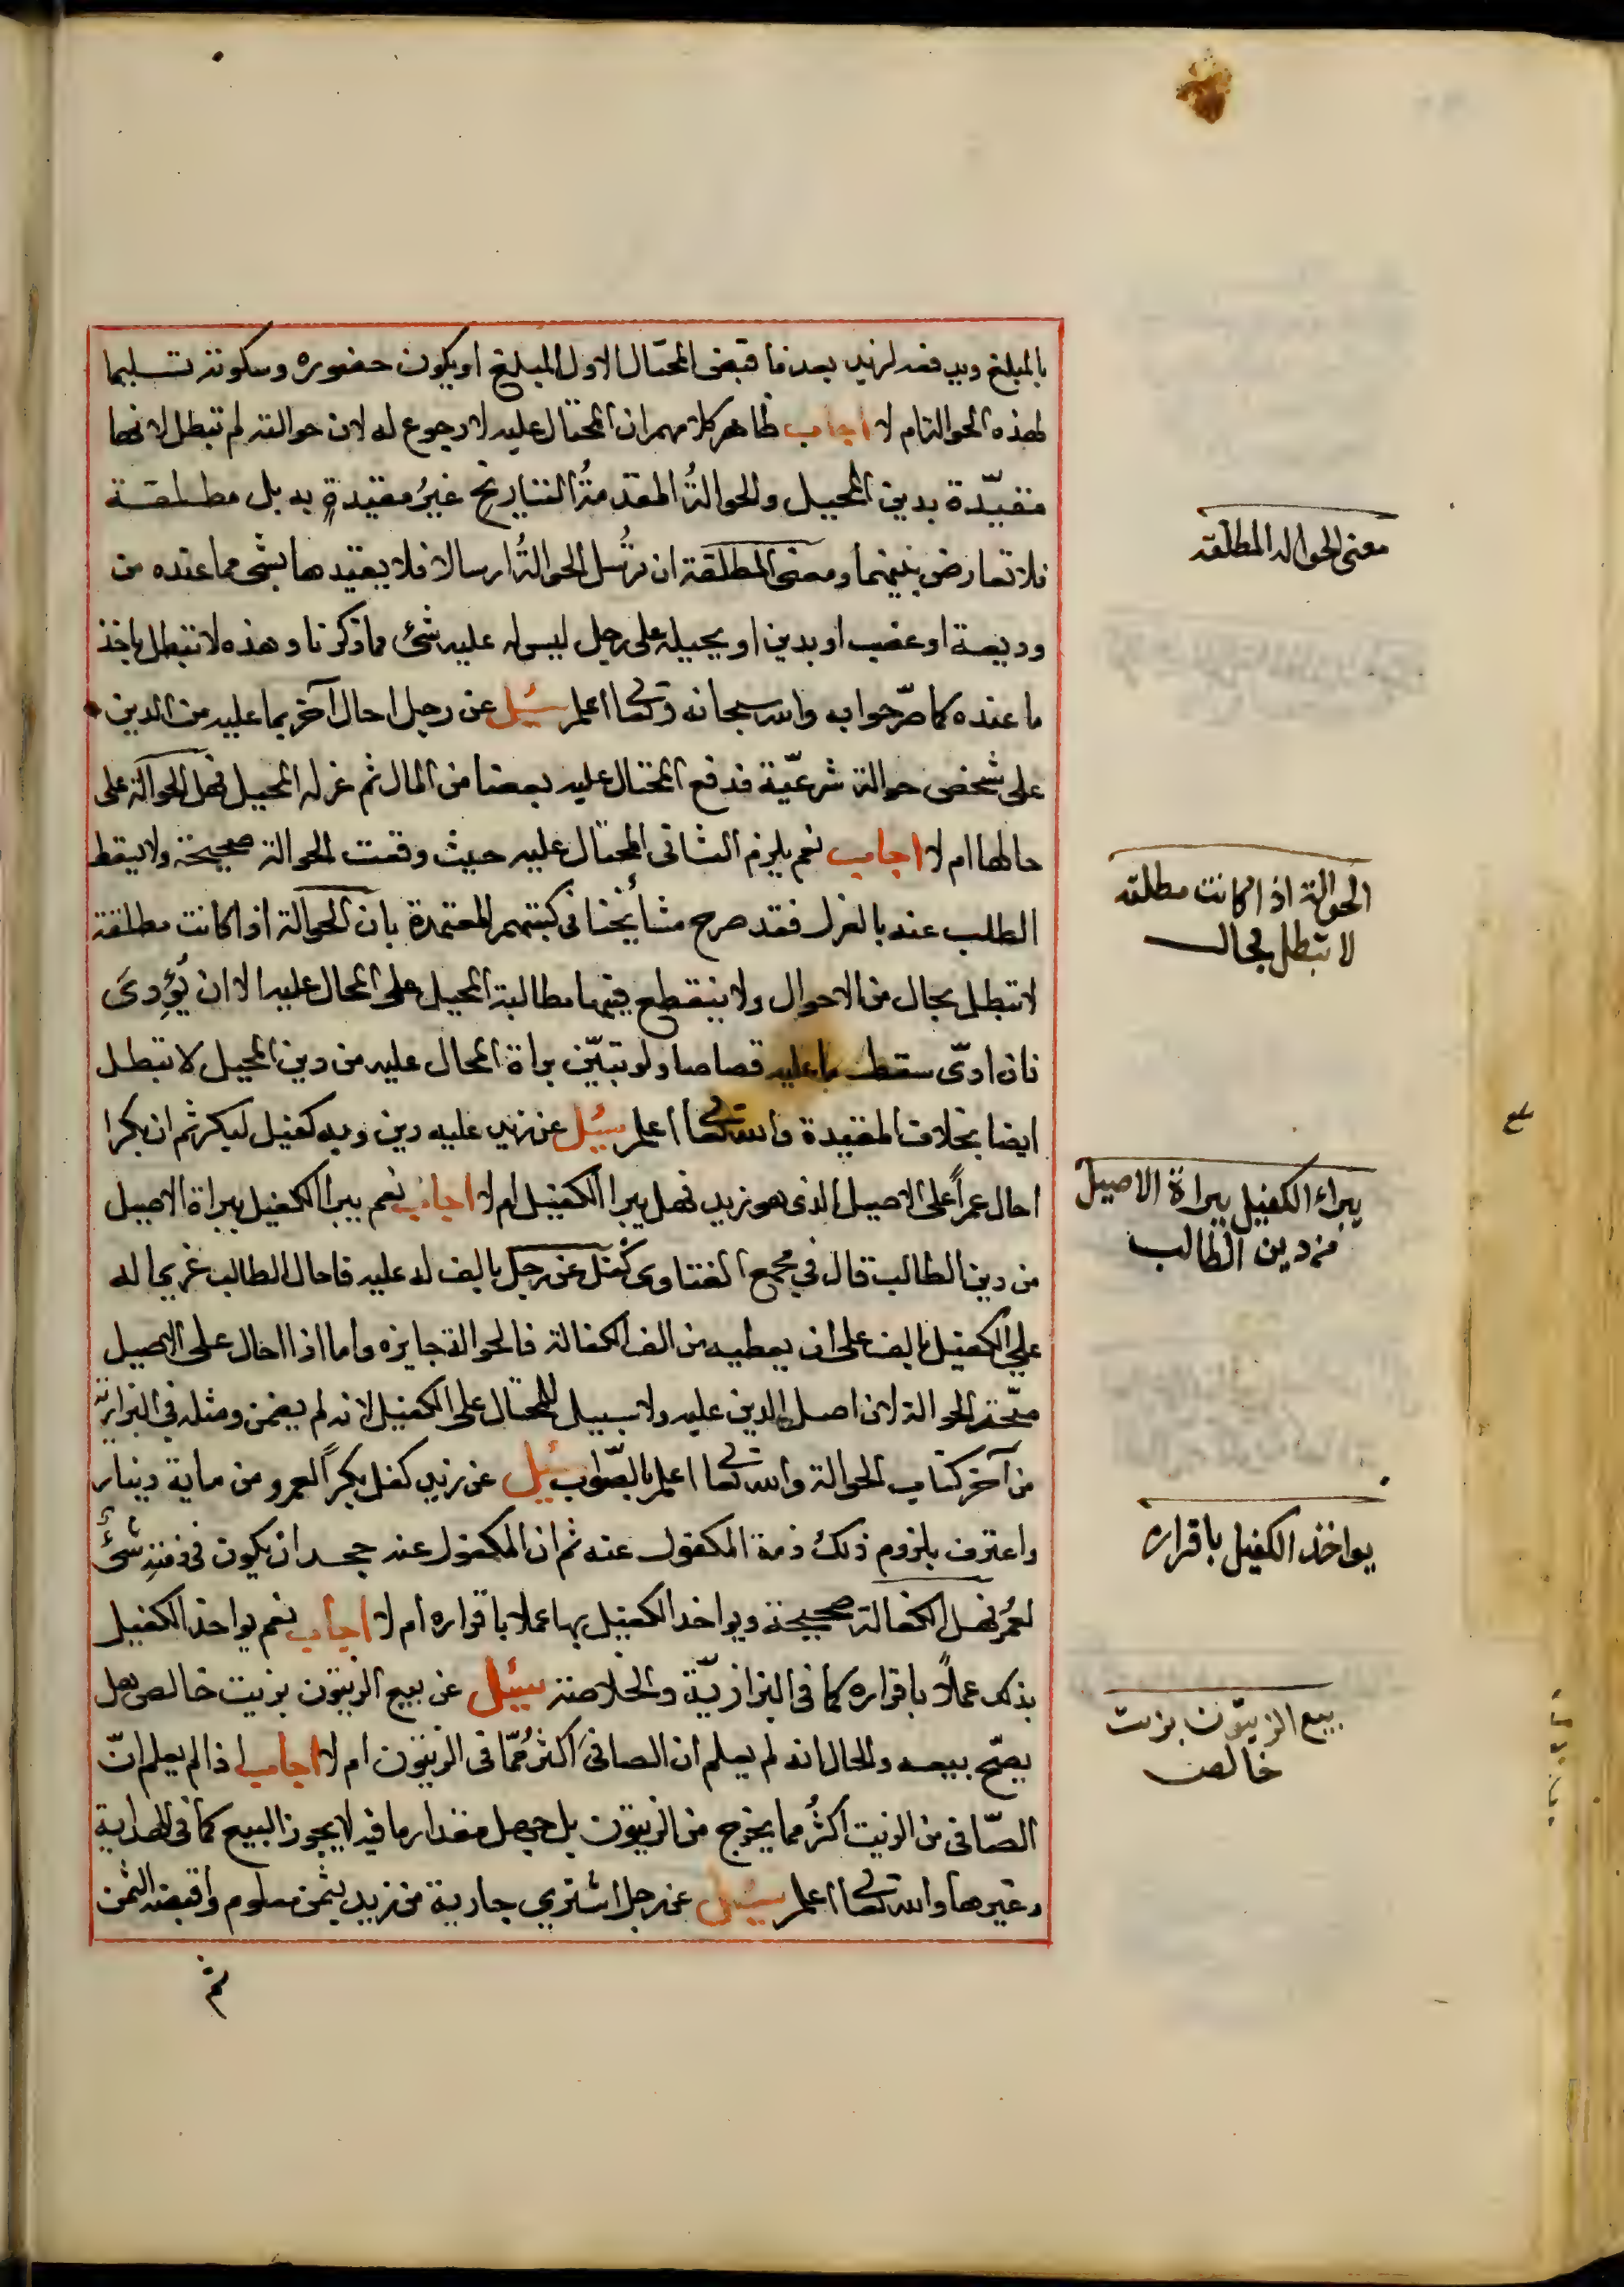 بالمبلغ ويدفعه لزيد بعدما قبض المحتال الاول المبلغ او يكون حضوره وسكوته تسليما
لهذه الحوالة ام لا اجاب ظاهر كلامهم ان المحتال عليه لا رجوع له لان حوالته لم تبطل لانها
مقيّدة بدين المحيل والحوالةُ المقدمةُ التاريخ غيرُ مقيدةٍ به بل مطلقة
فلا تعارض بينهما ومعنى المطلقة ان تُرسل الحوالةُ ارسالا فلا يقيدها بشئ مما عنده من
وديعة او غصب او بدين او يحيله على رجل ليس له عليه شئ مما ذكرنا وهذه لا تبطل باخذ
ما عنده كما صرّحوا به والله سبحانه وتعالى اعلم سئيل عن رجل احال آخر بما عليه من الدين
على شخص حوالة شرعيّة فدفع المحتال عليه بعضا من المال ثم عزله المحيل فهل الحوالة على
حالها ام لا اجاب نعم يلزم الثانى المحتال عليه حيث وقعت الحوالة صحيحة ولا يسقط
الطلب عنه بالعزل فقد صرح مشائخنا فى كتبهم المعتمدة بان الحوالة اذا كانت مطلقة
لا تبطل بحال من الاحوال ولا ينقطع فيها مطالبة المحيل على المحال عليه الا ان يُؤدِىَ
فان ادىّ سقط ما عليه قصاصا ولو تبيّن براة المحال عليه من دين المحيل لا تبطل
ايضا بخلاف المقيدة والله تعالى اعلم سئيل عن زيد عليه دين وبه كفيل لبكر ثم ان بكرا
احال عمراً على الاصيل الذى هو زيد فهل يبرا الكفيل ام لا اجاب نعم يبرا الكفيل ببراة الاصيل
من دين الطالب قال في مجمع الفتاوى كَفَل عن رجل بالف له عليه فاحال الطالب غريما له
على الكفيل بالف على ان يعطيه من الف الكفالة فالحوالة جايزه واما اذا احال على الاصيل
صحّت الحوالة لان اصل الدين عليه ولا سبيل للمحتال على الكفيل لانه لم يضمن ومثله فى البزازيّة
من آخر كتاب الحوالة والله تعالى اعلم بالصّواب سئيل عن زيد كفل بكراً لعمرو من ماية دينار
واعترف بلزوم ذلك ذمة المكفول عنه ثم ان المكفول عنه جحد ان يكون فى ذمتهِ شئٌ
لعمرٍ فهل الكفالة صحيحة ويواخذ الكفيل بها عملا باقراره ام لا اجاب نعم يواخذ الكفيل
بذلك عملاً باقراره كما فى البزازيّة والخلاصة سئيل عن بيع الزيتون بزيت خالص هل
يصحّ بيعه والحال انه لم يعلم ان الصافىَ اكثرُ ممّا فى الزيتون ام لا اجاب اذا لم يعلم انّ
الصّافى من الزيت اكثرُ مما يخرج من الزيتون بل جهل مقدار ما فيه لا يجوز البيع كما فى الهداية
وغيرها والله تعالى اعلم سئيل عن رجل اشتري جارية من زيد بثمن معلوم واقبضه الثمن
ثم
معنى الحواله المطلقه
الحوالة اذا كانت مطلقه
لا تبطل بحال
يبراء الكفيل ببراة الاصيل
من دين الطالب
يواخذ الكفيل باقراره
بيع الزيتون بزيت
خالص